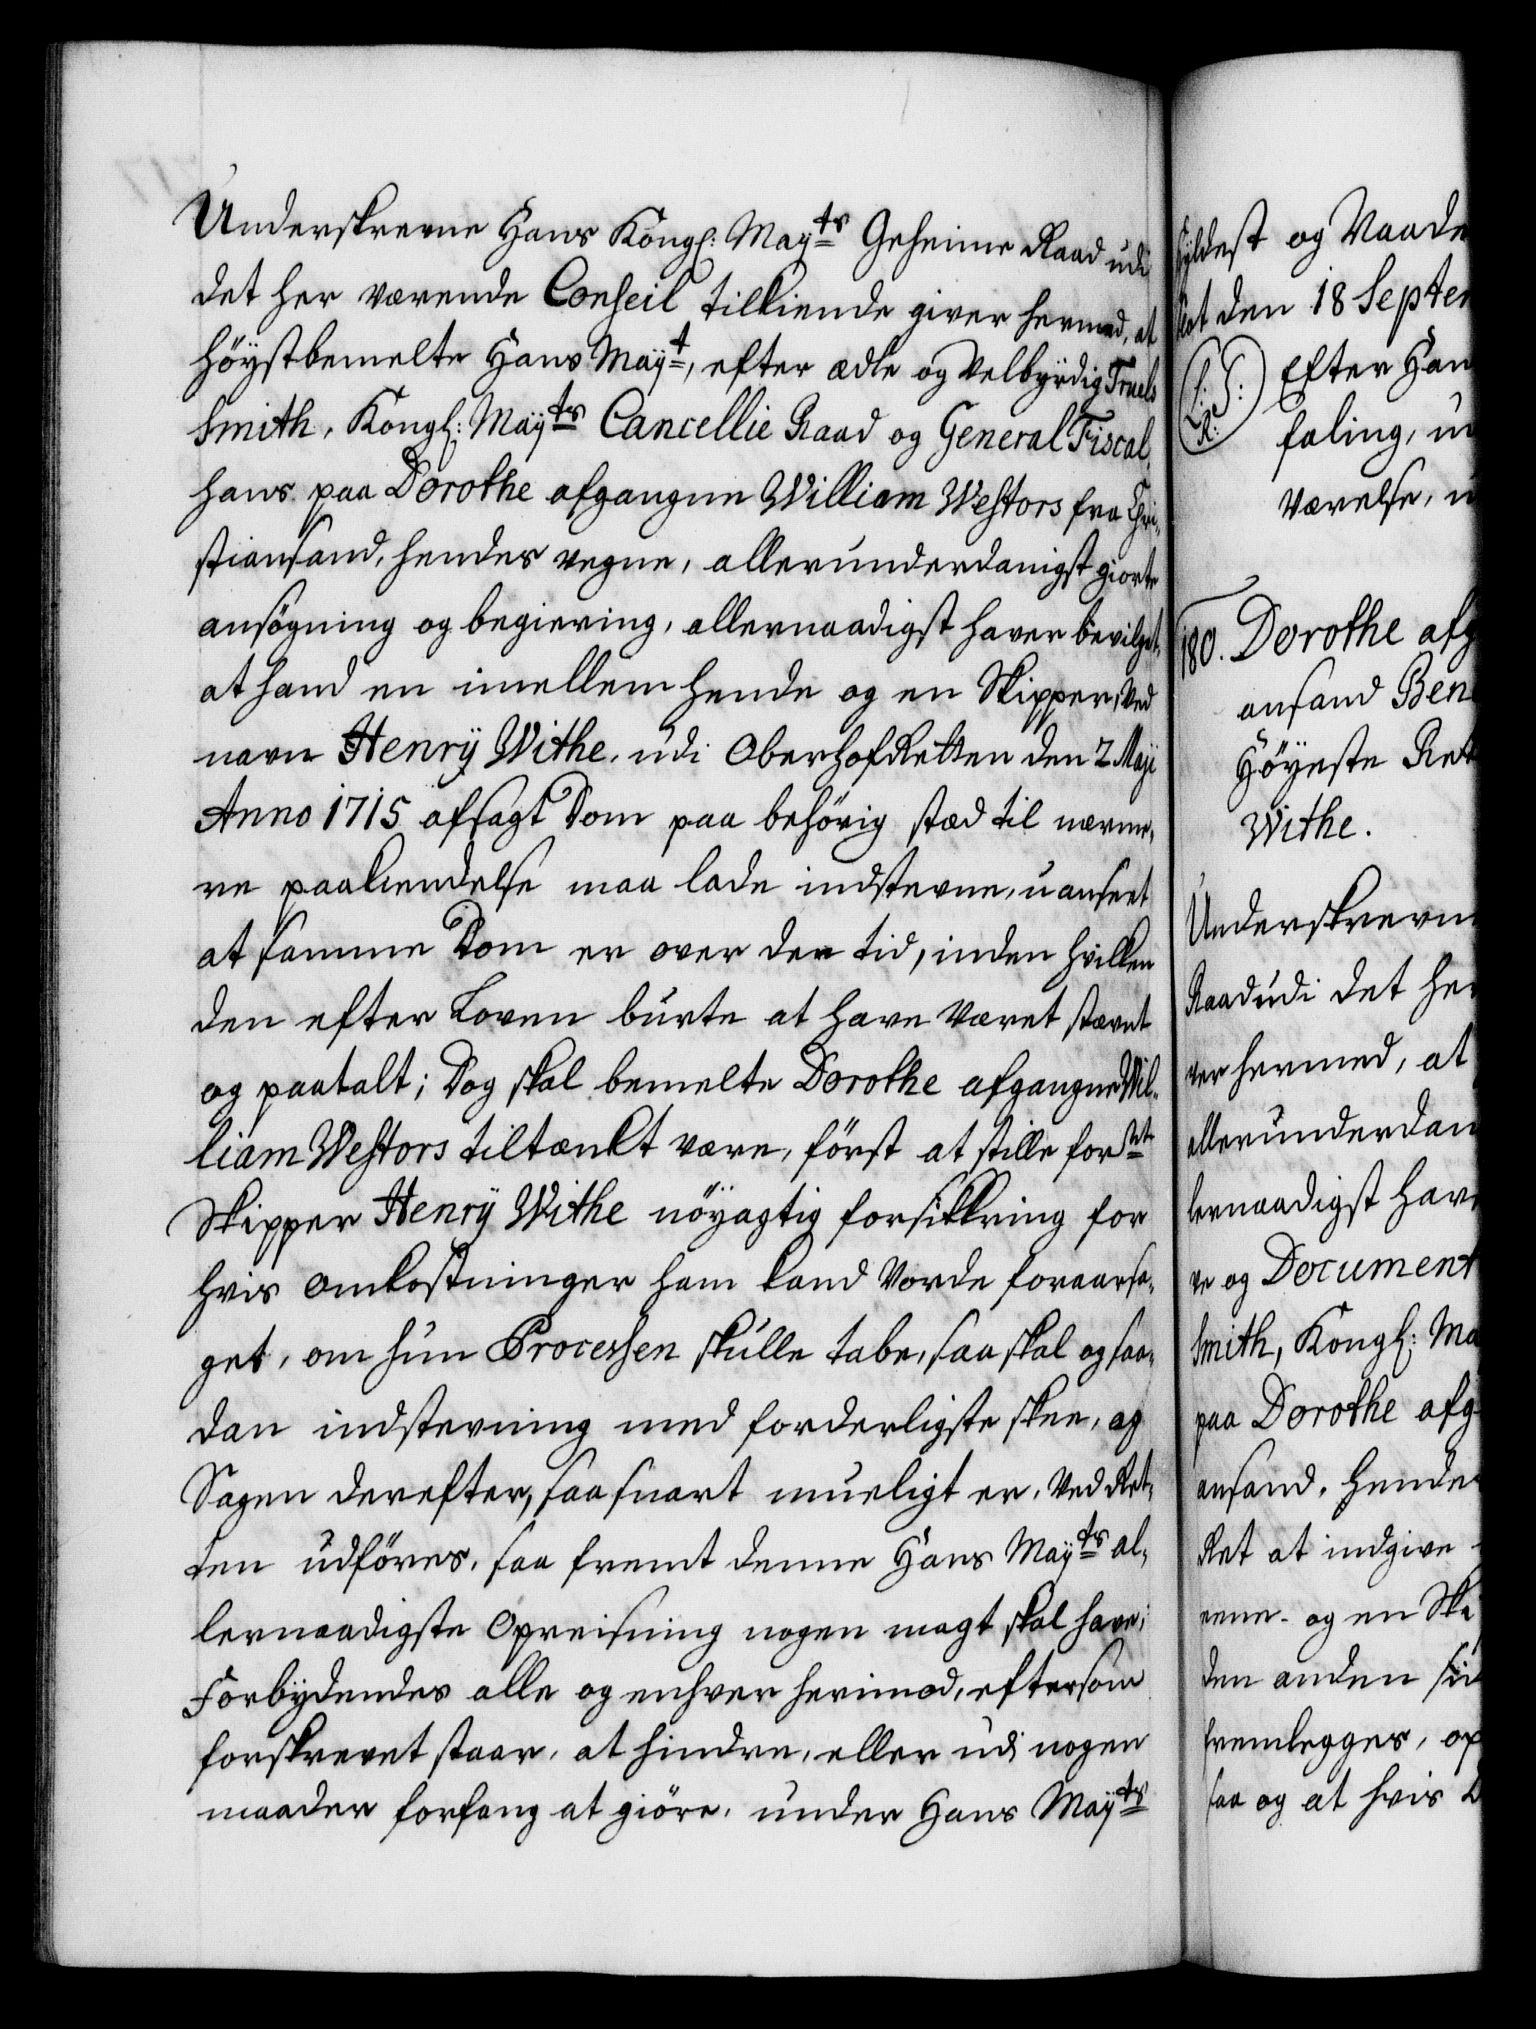 Underskrevne Hans Kongl: Mayts Geheime Raad udi
det her værende Conseil tilkiende giver hermed, at
høystbemelte Hans Mayt, efter ædle og Velbyrdig Truels
Smith, Kongl: Mayts Cancellie Raad og General Fiscal,
hans paa Dorothe afgangne William Westors fra Chri-
stiansand, hendes vegne, allerunderdanigst giorte
ansøgning og begiering, allernaadigst haver bevilget,
at hand en imellem hende og en Skipper, ved
navn Henry Withe, udi OberhofRetten den 2 Maji
Anno 1715 afsagt Dom paa behørig stæd til nærme-
re paakiendelse maa lade indstevne, uanseet
at samme Dom er over den tid, inden hvilken
den efter Loven burte at have været stævnt
og paatalt; Dog skal bemelte Dorothe afgangne Wil-
liam Westors tiltænkt være, först at stille forste
Skipper Henry Withe nöyagtig forsikkring for
hvis omkostninger ham kand vorde foraarsa-
get, om hun Processen skulle tabe, saa skal og saa-
dan indstevning med forderligste skee, og
Sagen derefter, saa snart mueligt er, ved Ret-
ten udföres, saa fremt denne Hans Mayts al-
lernaadigste Opreisning nogen magt skal have;
Forbydendes alle og enhver herimod, eftersom
forskrevet staar, at hindre, eller udi nogen
maader forfang at giöre, under Hans Mayts
fyldest og Vaade
den 18 Septem
L: S:
R:
Efter Han
faling, u
Værelse, u
180. Dorothe afg
ansand Ben
Höyeste Rett
Withe.
Underskrevne
Raad udi det her
ver hermed, at
allerunderdan
lernaadigst have
ve og Document
Smith, Kongl: Ma
paa Dorothe afg
ansand, hendes
Ret at indgive
eene- og en Ski
den anden sid
fremlegges, op
saa og at hvis D